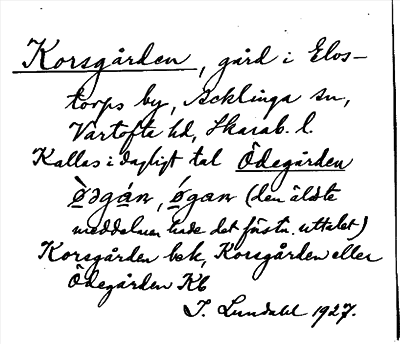 Korsgården, gård i Elos-
torps by, Acklinga sn,
Vartofta hd, Skarab. l.
Kallas i dagligt tal Ödegården
gán, ógan (den äldste
meddelaren hade det förstn. uttalet)
Korsgården bek, Korsgården eller
Ödegården Kb
J. Lundahl 1927.